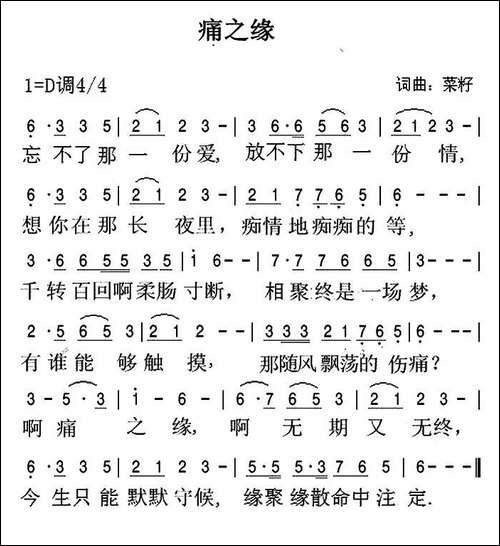 痛之缘
1=D调4/4 词曲：菜籽
6·3 3 5 | 2 1 2 3 - | 3 6·6 5 6 3 | 2 1 2 3 - |
忘不了那一份爱, 放不下那一份情,
6·3 3 5 | 2 1 2 3 - | 2 1 7 7 6 5 | 6 - - - |
想你在那长夜里, 痴情地痴痴的等,
3·6 6 5 5 3 5 | i 6 - - | 7·7 7 6 6 5 | 3 - - - |
千转百回啊柔肠寸断, 相聚终是一场梦,
2·5 6 5 3 | 2 1 2 - - | 3 3 3 2 1 7 6 5 | 6 - - - |
有谁能够触摸, 那随风飘荡的伤痛?
3 - 5·3 | i - 6 - | 6·7 6 5 3 | 2 1 2 3 - |
啊痛之缘, 啊无期又无终,
6·3 3 5 | 2·2 2 3 - | 5·5 5·3 7 6 5 | 6 - - - ‖
今生只能默默守候, 缘聚缘散命中注定.